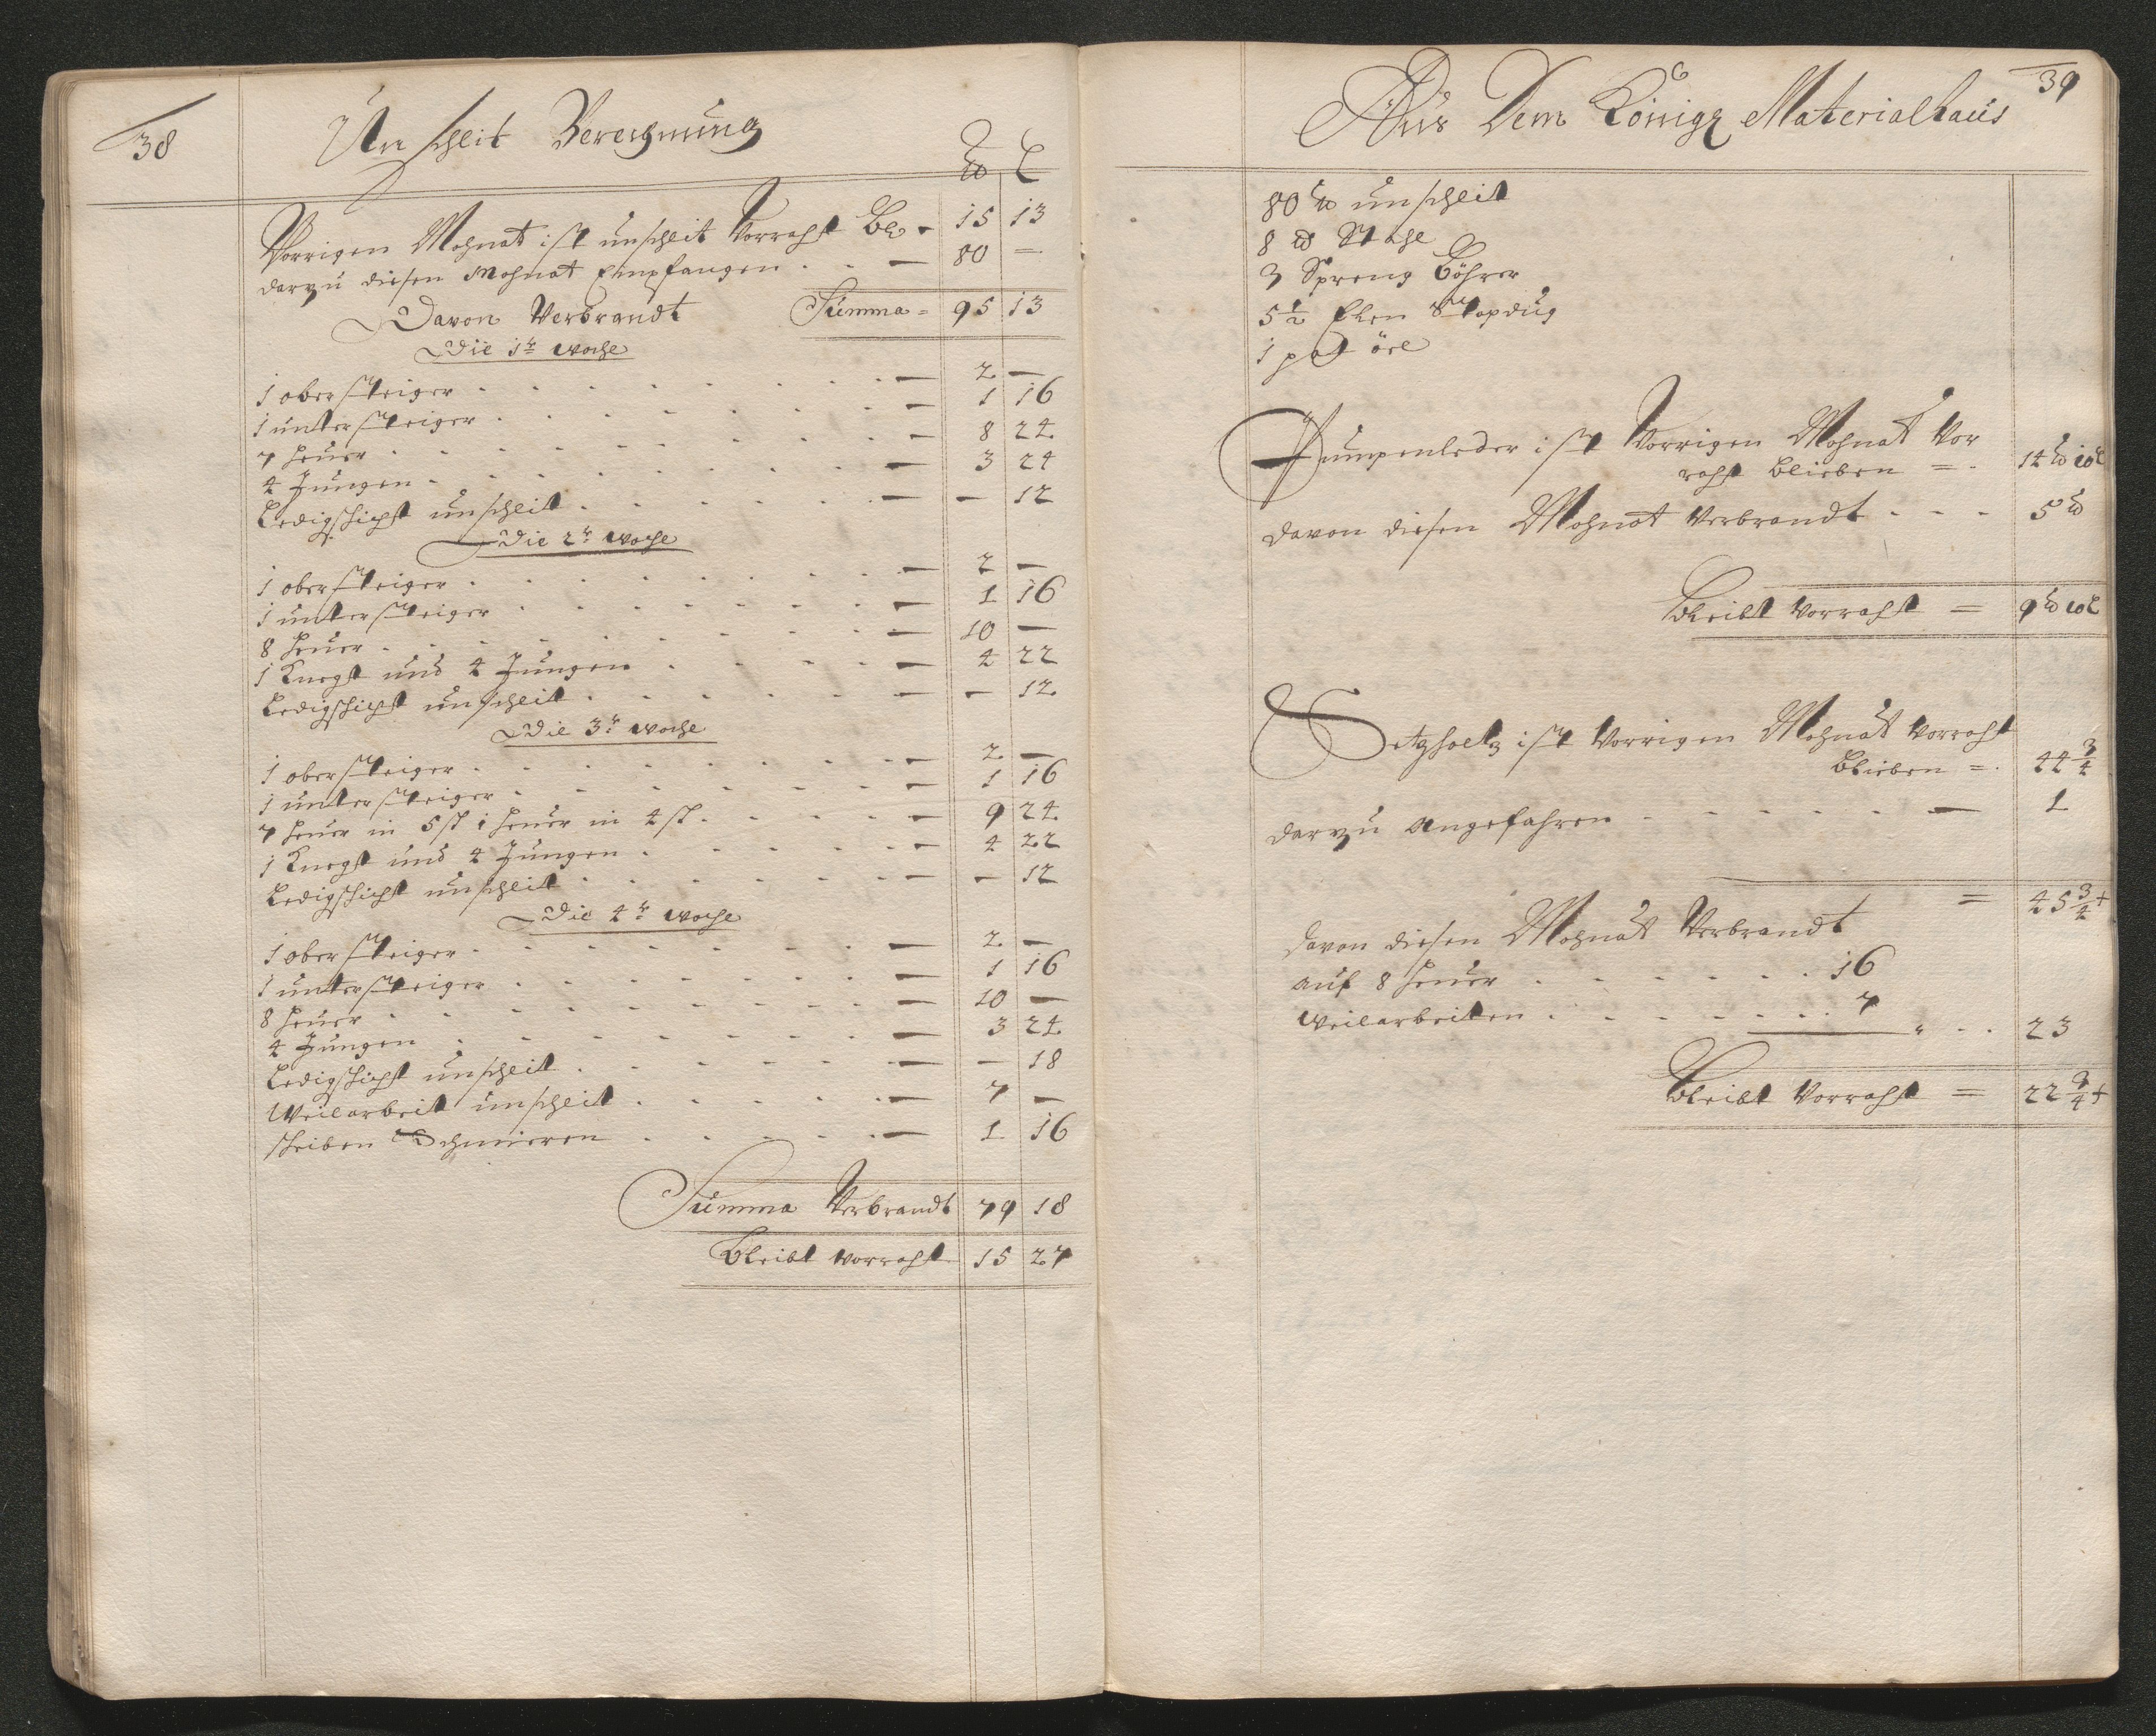 38
Unscheit Berechnung
℔ L
Vorrigen Mohnat ist unscheit Vorraht Bl. - 15 13
darzu diesen Mohnat Empfangen . . — 80 =
Davon Verbrandt Summa = 95 13
Die 1te woche
1 obersteiger . . . . — 2 —
1 untersteiger . . . . — 1 16
7 heuer . . . . — 8 24
4 Jungen . . . . — 3 24
Ledigschicht unscheit . . . . — — 12
Die 2te woche
1 obersteiger . . . . — 2 —
1 untersteiger . . . . — 1 16
8 heuer . . . . — 10 —
1 Knegt und 4 Jungen . . . . — 4 22
Ledigschicht unscheit . . . . — — 12
Die 3te woche
1 obersteiger . . . . — 2 —
1 untersteiger . . . . — 1 16
7 heuer in 5 st 1 heuer in 4 st . . . . — 9 24
1 Knegt und 4 Jungen . . . . — 4 22
Ledigschicht unscheit . . . . — — 12
Die 4te woche
1 obersteiger . . . . — 2 —
1 untersteiger . . . . — 1 16
8 heuer . . . . — 10 —
4 Jungen . . . . — 3 24
Ledigschicht unscheit . . . . — — 18
Weilarbeit unscheit . . . . — 7 —
scheiben Schmieren . . . . — 1 16
Summa Verbrandt 79 18
Bleibt vorraht 15 27
39
Aus Dem Königl Materialhaus
80 ℔ unscheit
8 ℔ Stahl
3 Spreng Böhrer
5 1/2 Elen
1 pot öel
Pumpenleder ist Vorrigen Mohnat Vor
raht blieben = . 14 ℔ 10 L
davon diesen Mohnat Verbrandt . . . 5 ℔
Bleibt Vorraht = 9 ℔ 10 L
Setzholtz ist Vorrigen Mohnat Vorraht
Blieben = . 44 3/4
darzu Angefahren . . . . — 1
= 45 3/4 +
davon diesen Mohnat Verbrandt
auf 8 heuer . . . . 16
Weilarbeiten . . . . 7
23
Bleibt Vorraht = 22 3/4 +